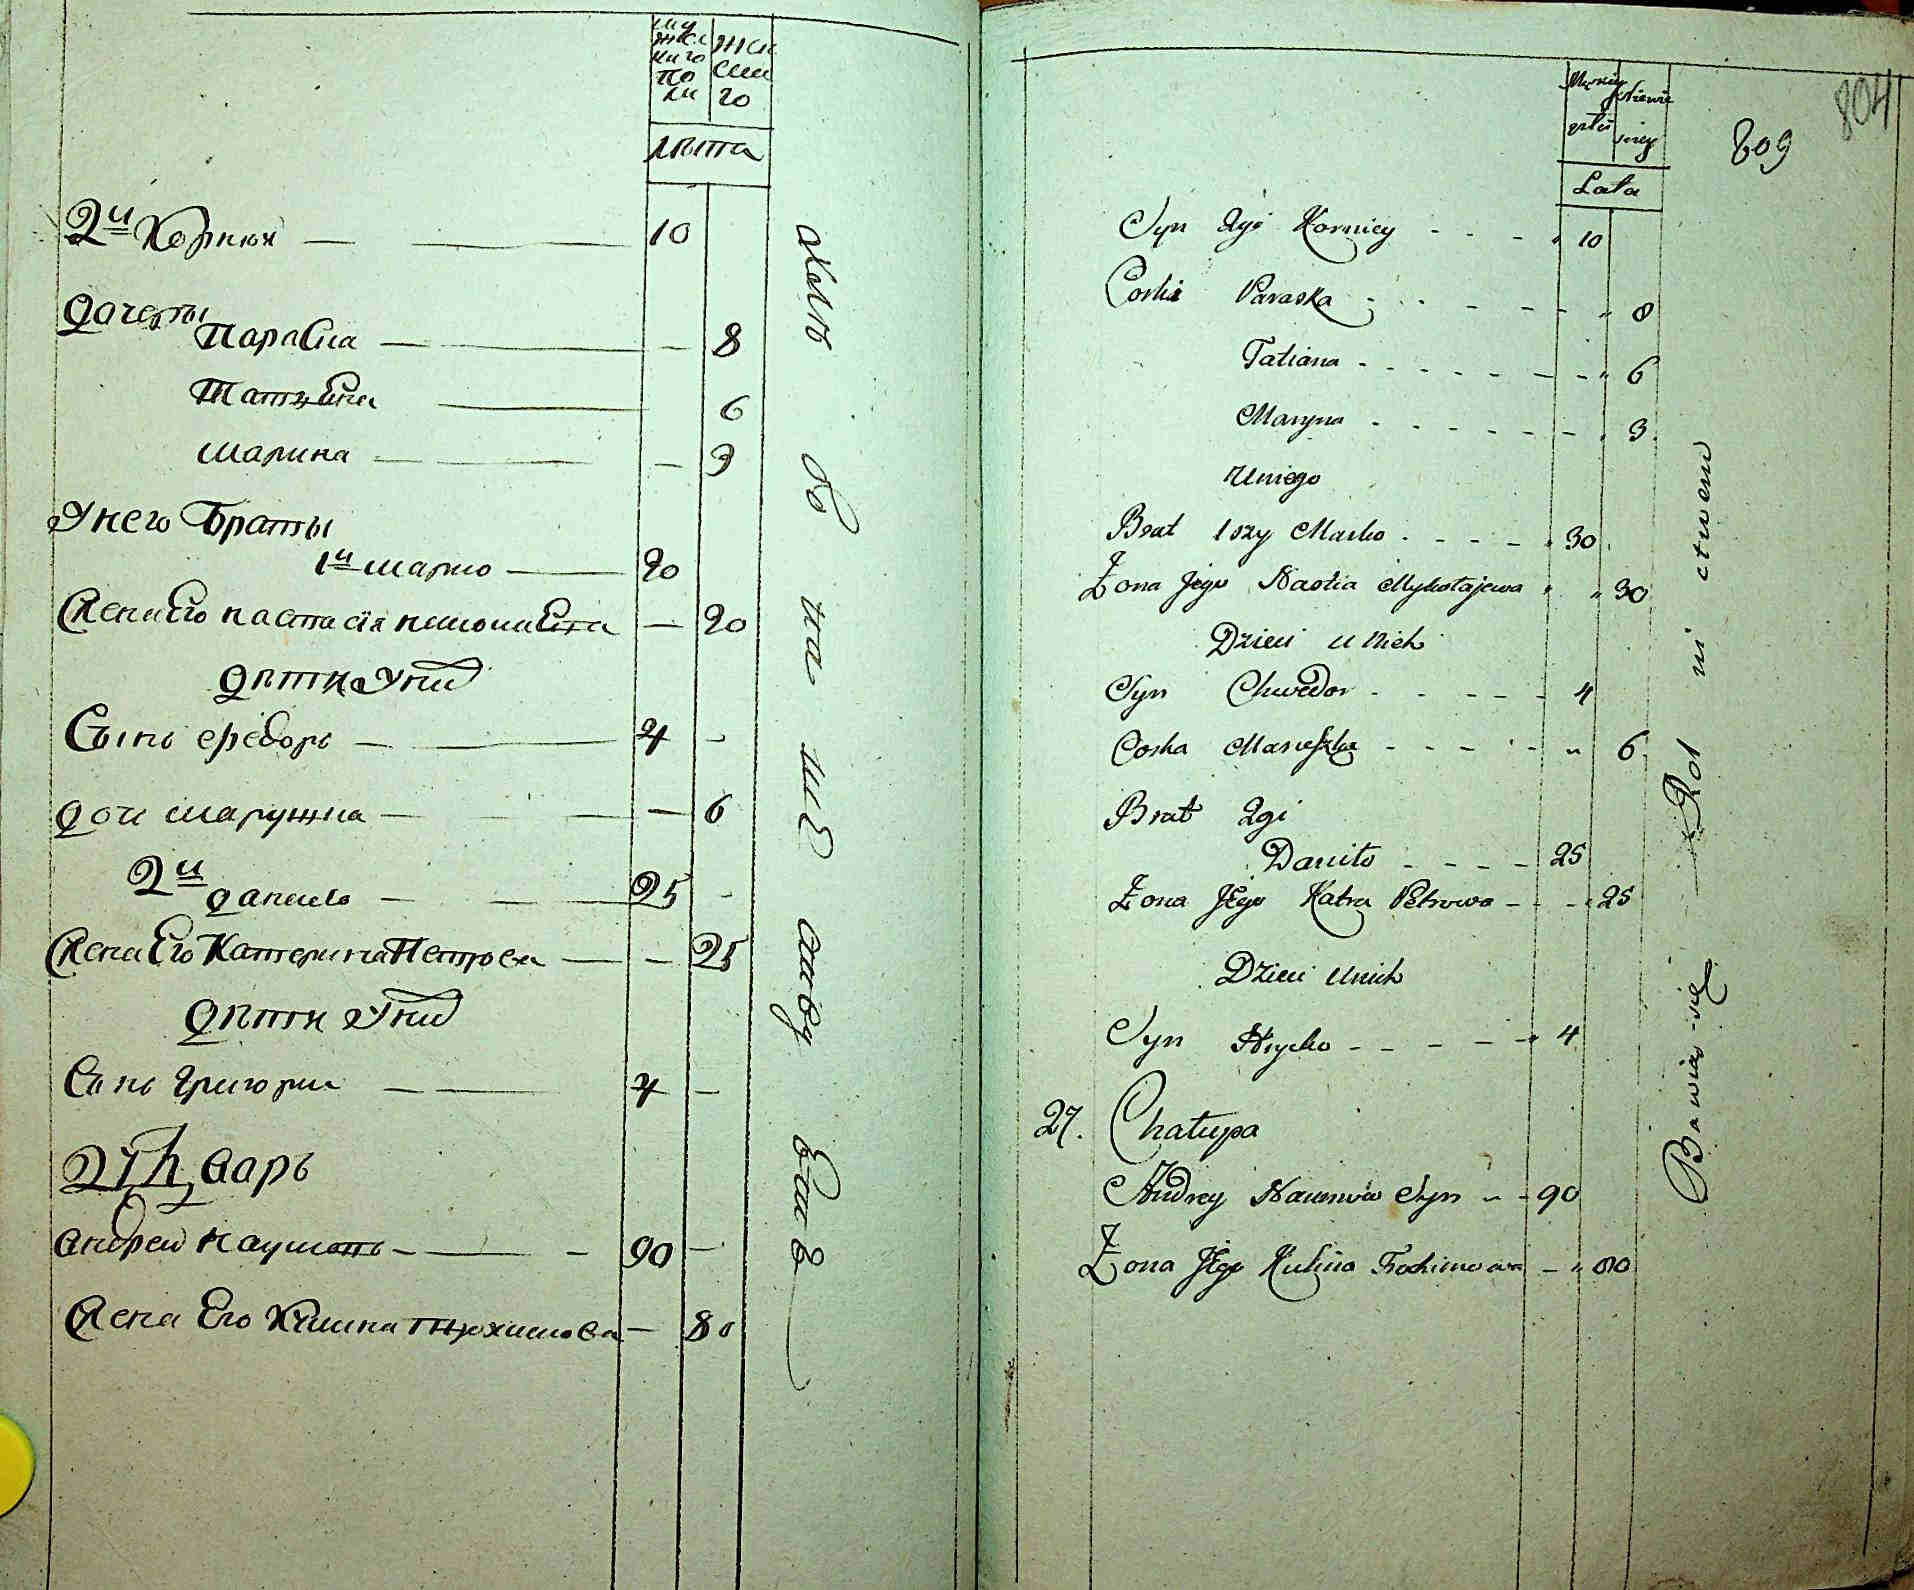 мужескаго полу
женскаго
лѣта
2й Корнѣй — 10
дочеры
Параска — 8
Татьяна 6
Марина — 3
У него Браты
1й Марко — 30
Жена Его Настасія — 30
дѣти У них
Сынъ Федоръ — 4 -
дочь Марушка — 6
2й
данило — 25 -
Жена Его Катерина Петрова — 25
дѣти У них
Сынъ Григорий — 4 —
27
Андрей Наумовъ — 90 —
Жена Его Кулина Трохимова — 80
809
804
Lata
Syn 2gi Korniey 10
Corki Paraska 8
Tatiana 6
Maryna 3
U niego
Brat 1szy Marko 30
Żona Jego Nastia Mykołajewa 30
Dzieci u Nich
Syn Chwedor 4
Corka Maruszka 6
Brat 2gi
Daniło 25
Żona Jego Katra Petrowa 25
Dzieci u nich
Syn Hryćko 4
27. Chałupa
Andrey Naumów Syn 90
Żona Jego Kulina Trochimowa 80
Bawią się Rolnictwem